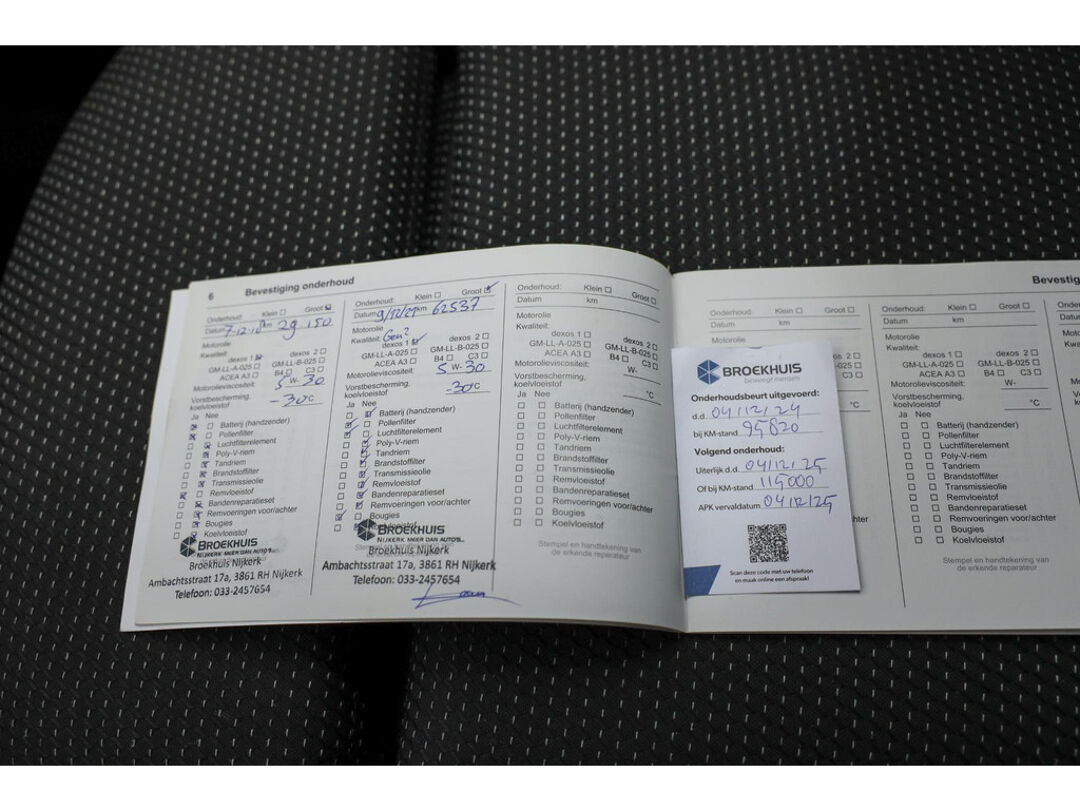 6 Bevestiging onderhoud
Onderhoud: Klein Groot
Datum 7-12-18 km 29.150
Motorolie
Kwaliteit: dexos 1 dexos 2
GM-LL-A-025 GM-LL-B-025
ACEA A3 B4 C3
Motorolieviscositeit: 5 W- 30
Vorstbescherming,
koelvloeistof -30°C
Ja Nee
Batterij (handzender)
Pollenfilter
Luchtfilterelement
Poly-V-riem
Tandriem
Brandstoffilter
Transmissieolie
Remvloeistof
Bandenreparatieset
Remvoeringen voor/achter
Bougies
Koelvloeistof
BROEKHUIS
NIJKERK MEER DAN AUTO'S
Broekhuis Nijkerk
Ambachtsstraat 17a, 3861 RH Nijkerk
Telefoon: 033-2457654
Onderhoud: Klein Groot
Datum 9/12/21 km 62537
Motorolie
Kwaliteit: Gen2
dexos 1 dexos 2
GM-LL-A-025 GM-LL-B-025
ACEA A3 B4 C3
Motorolieviscositeit: 5 W- 30
Vorstbescherming,
koelvloeistof -30°C
Ja Nee
Batterij (handzender)
Pollenfilter
Luchtfilterelement
Poly-V-riem
Tandriem
Brandstoffilter
Transmissieolie
Remvloeistof
Bandenreparatieset
Remvoeringen voor/achter
Bougies
Koelvloeistof
BROEKHUIS
NIJKERK MEER DAN AUTO'S
Broekhuis Nijkerk
Ambachtsstraat 17a, 3861 RH Nijkerk
Telefoon: 033-2457654
Onderhoud: Klein Groot
Datum km
Motorolie
Kwaliteit:
dexos 1 dexos 2
GM-LL-A-025 GM-LL-B-025
ACEA A3 B4 C3
Motorolieviscositeit: W-
Vorstbescherming,
koelvloeistof °C
Ja Nee
Batterij (handzender)
Pollenfilter
Luchtfilterelement
Poly-V-riem
Tandriem
Brandstoffilter
Transmissieolie
Remvloeistof
Bandenreparatieset
Remvoeringen voor/achter
Bougies
Koelvloeistof
Stempel en handtekening van
de erkende reparateur
Onderhoud: Klein Groot
Datum km
Motorolie
BROEKHUIS
beweegt mensen
Onderhoudsbeurt uitgevoerd:
d.d. 04/12/24
bij KM-stand 95820
Volgend onderhoud:
Uiterlijk d.d. 04/12/25
Of bij KM-stand 115000
APK vervaldatum 04/12/25
Scan deze code met uw telefoon
en maak online een afspraak!
Bevestig
Onderhoud: Klein Groot
Datum km
Motorolie
Kwaliteit:
dexos 1 dexos 2
GM-LL-A-025 GM-LL-B-025
ACEA A3 B4 C3
Motorolieviscositeit: W-
Vorstbescherming,
koelvloeistof °C
Ja Nee
Batterij (handzender)
Pollenfilter
Luchtfilterelement
Poly-V-riem
Tandriem
Brandstoffilter
Transmissieolie
Remvloeistof
Bandenreparatieset
Remvoeringen voor/achter
Bougies
Koelvloeistof
Stempel en handtekening van
de erkende reparateur